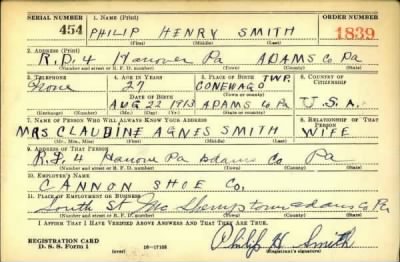 SERIAL NUMBER 1. NAME (Print) ORDER NUMBER
454 PHILIP HENRY SMITH 1839
(First) (Middle) (Last)
2. ADDRESS (Print)
R.D.4 Hanover Pa ADAMS Co Pa
(Number and street or R. F. D. number) (Town) (County) (State)
3. TELEPHONE 4. AGE IN YEARS 5. PLACE OF BIRTH 6. COUNTRY OF CITIZENSHIP
None 27 CONEWAGO TWP.
DATE OF BIRTH (Town or county)
AUG 22 1913 ADAMS Co Pa U.S.A.
(Exchange) (Number) (Mo.) (Day) (Yr.) (State or country)
7. NAME OF PERSON WHO WILL ALWAYS KNOW YOUR ADDRESS 8. RELATIONSHIP OF THAT PERSON
MRS CLAUDINE AGNES SMITH WIFE
(Mr., Mrs., Miss) (First) (Middle) (Last)
9. ADDRESS OF THAT PERSON
R.D.4 Hanover Pa Adams Co Pa
(Number and street or R. F. D. number) (Town) (County) (State)
10. EMPLOYER'S NAME
CANNON SHOE Co.
11. PLACE OF EMPLOYMENT OR BUSINESS
South St Mc Sherrystown Adams Co Pa
(Number and street or R. F. D. number) (Town) (County) (State)
I AFFIRM THAT I HAVE VERIFIED ABOVE ANSWERS AND THAT THEY ARE TRUE.
REGISTRATION CARD
D. S. S. Form 1 (over) 16-17105 Philip H. Smith
(Registrant's signature)